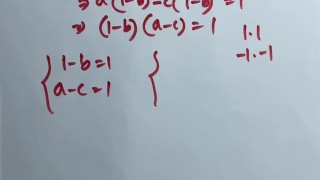 ⇒ a(1-b)-c(1-b)=1
⇒ (1-b)(a-c)=1
1.1
-1.-1
{ 1-b=1 {
a-c=1